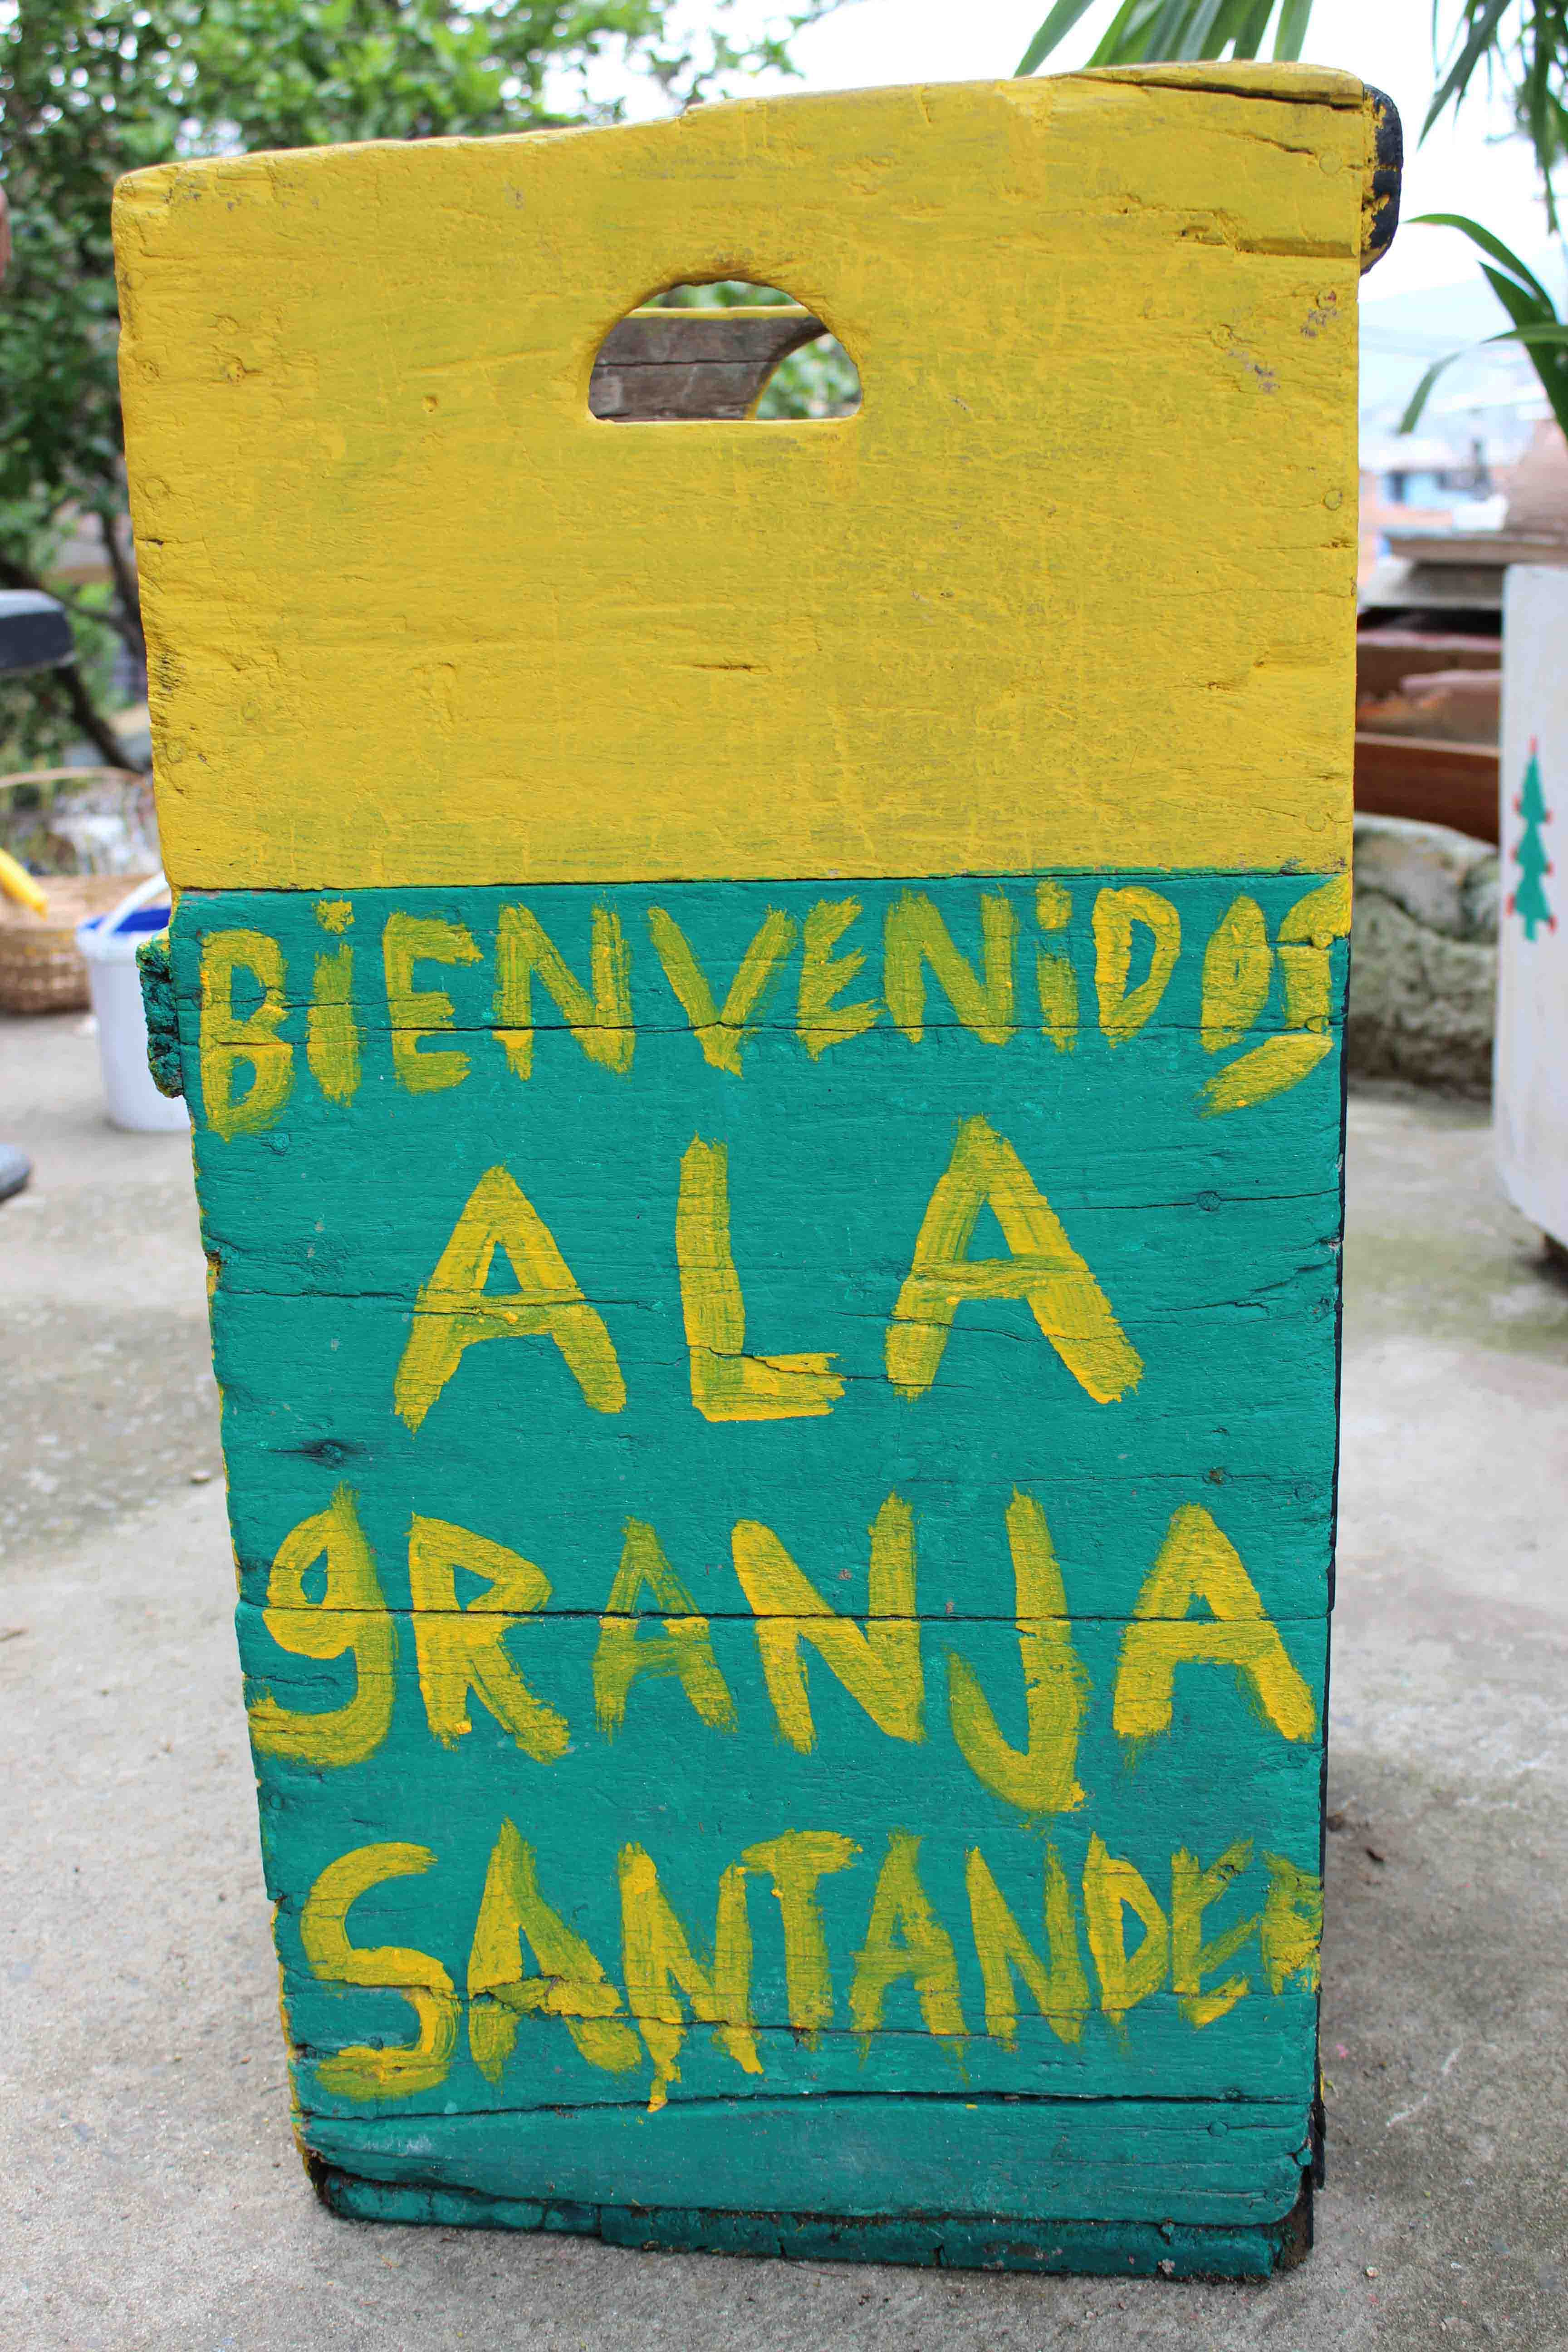 BiENVENiDOS
ALA
gRANJA
SANTANDER